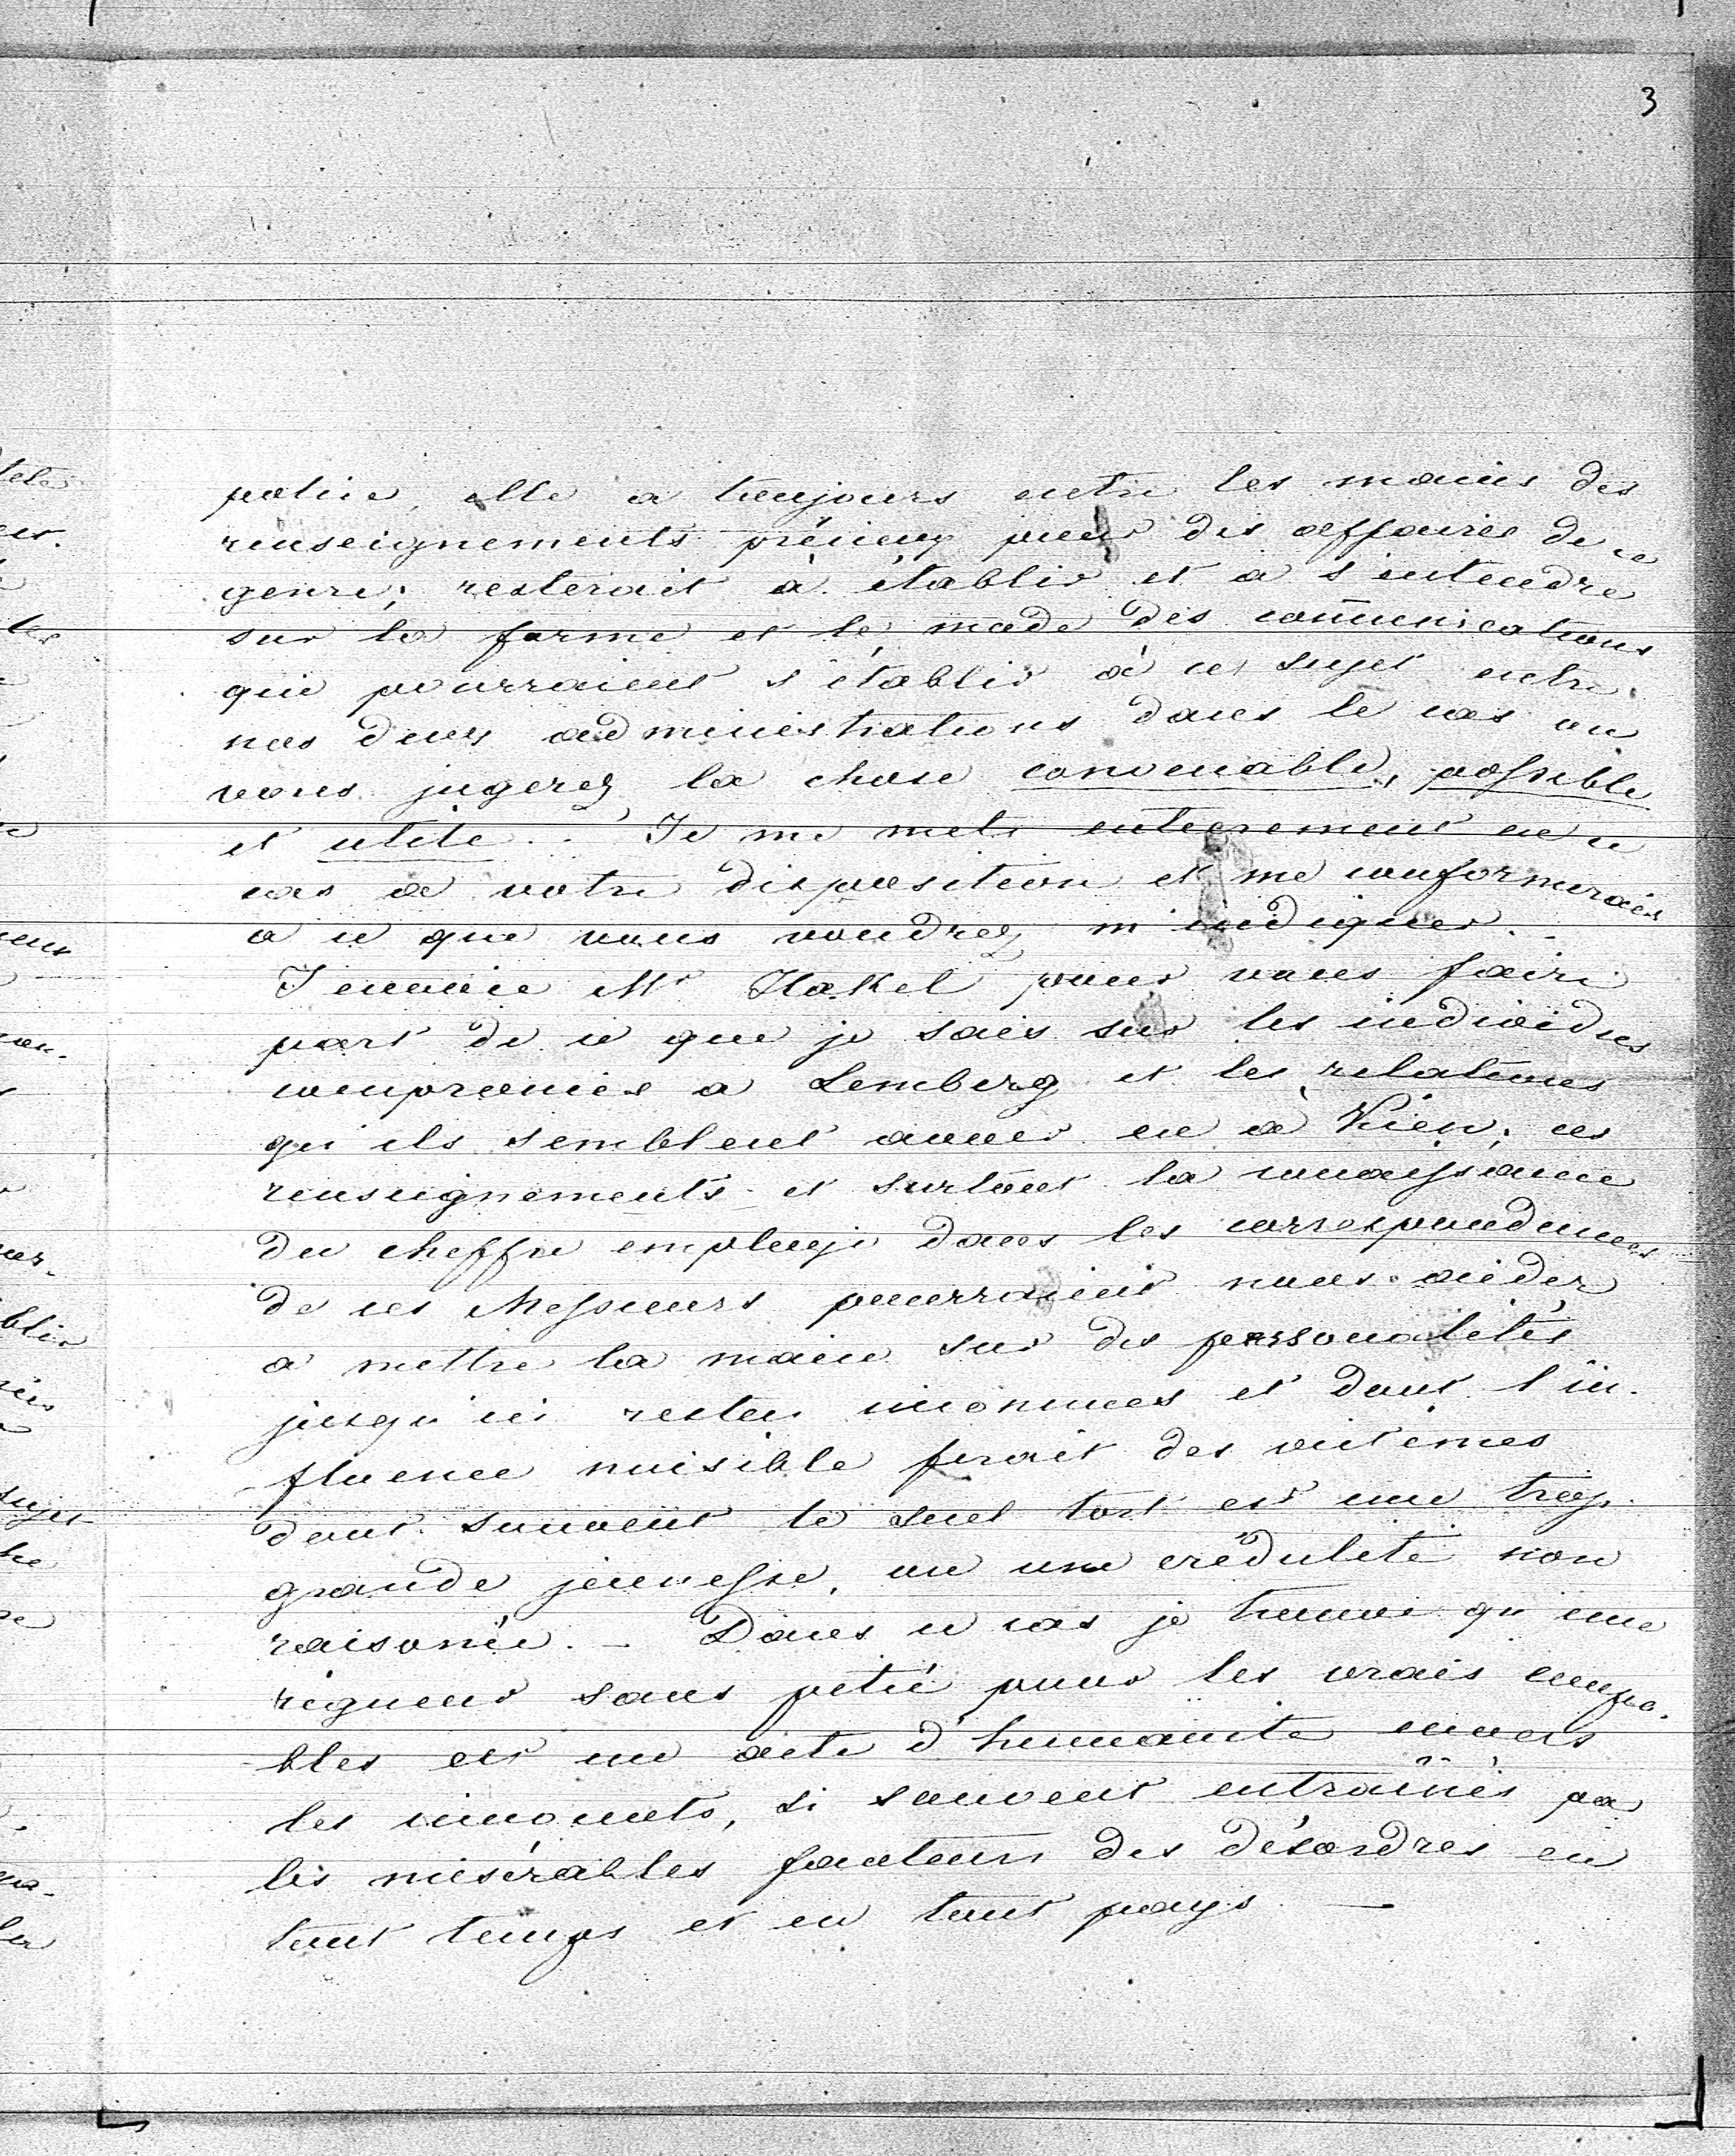 3
police, elle a toujours entre les mains des
renseignements précieux pour des affaires de ce
genre; resterait à établir et à s'entendre
sur la forme et le mode des communications
qui pourraient s'établir à ce sujet entre
nos deux administrations dans le cas ou
vous jugerez la chose convenable, possible
et utile. . Je me mets entierement en ce
cas a votre disposition et me conformerais
a ce que vous voudrez m'indiquer. _
J'envoie Mr Hakel pour vous faire
part de ce que je sais sur les individus
compromis a Lemberg et les relations
qu'ils semblent avoir eu à Kiew; ces
renseignements et surtout la connaissance
du cheffre employé dans les correspondences
de ces Messieurs pourraient nous aider
a mettre la main sur des personalités
jusqu'ici restés inconnues et dont l'in-
fluence nuisible ferait des victimes
dont souvent le seul tort est une trop
grande jeunesse, ou une crédulité non
raisonée. _ Dans ce cas je trouve qu'une
rigueur sans pitié pour les vrais coupa-
bles est un acte d'humanité envers
les innocents, si souvent entraînés par
les misérables fauteurs des désordres en
tout temps et en tout pays _